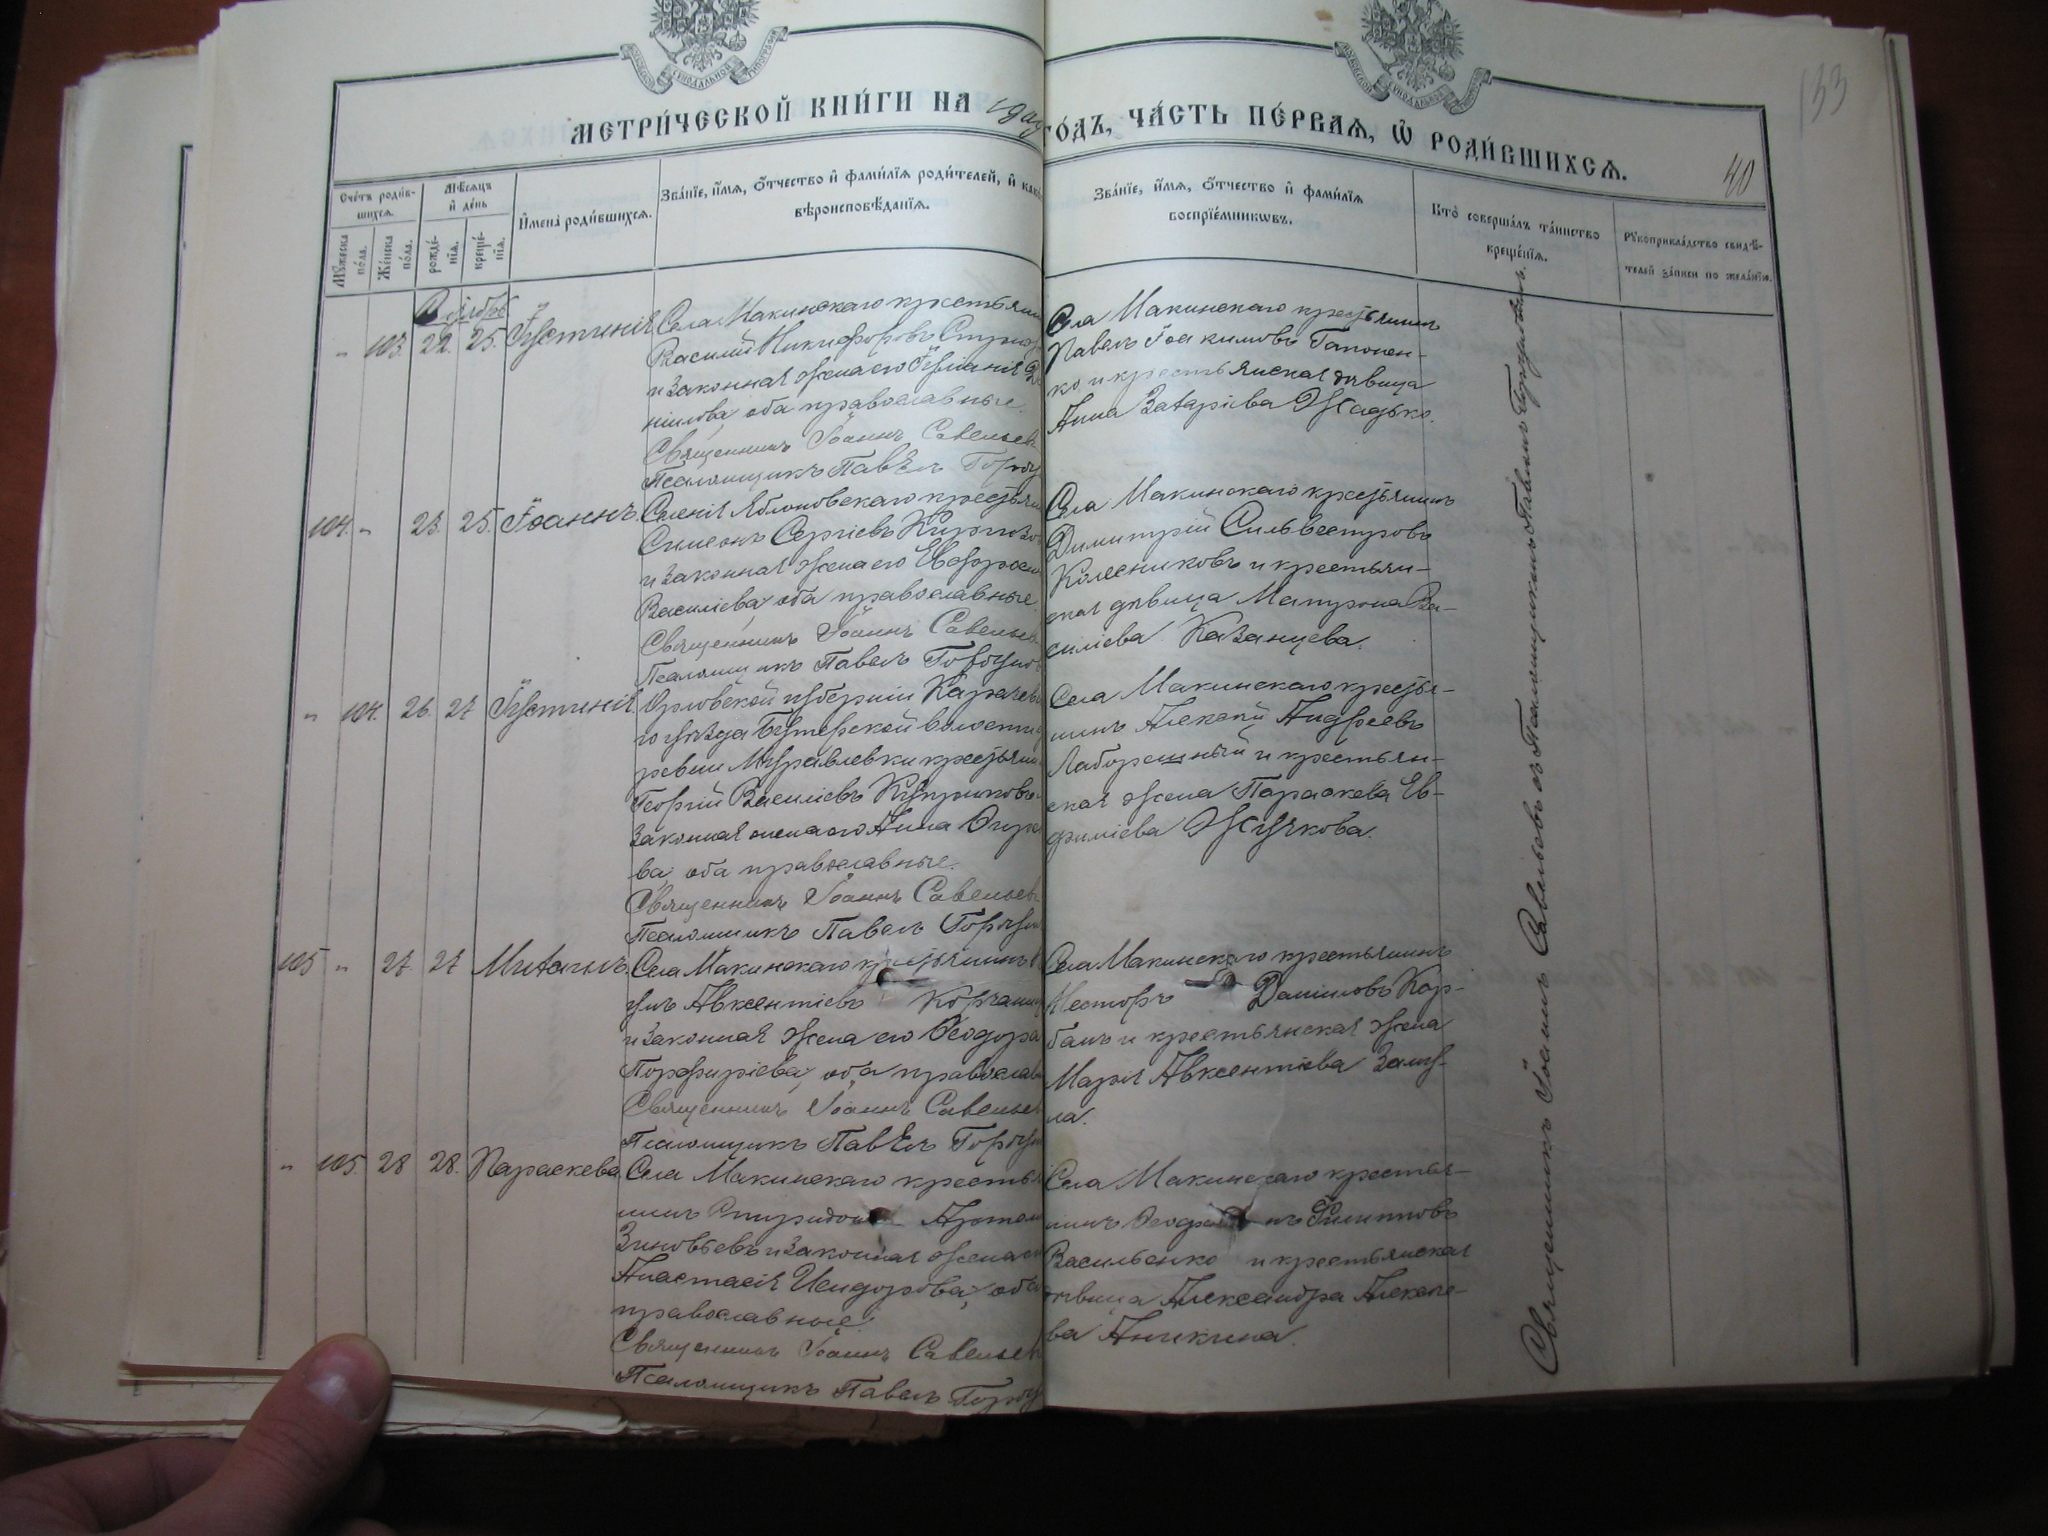 153
МЕТРИ́ЧЕСКОЙ КНИ́ГИ НА ГО́ДЪ, ЧА́СТЬ ПЕ́РВАЯ, Ѡ РОДИ́ВШИХСЯ.
40
Сче́тъ роди́в-
шихся.
Мꙋ́жеска по́ла.
Же́нска по́ла.
Мѣ́сяцъ и де́нь
рожде́-нїя.
креще́-нїя.
И҆мена̀ роди́вшихся.
Зва́нїе, и҆́мя, ѻ҆́тчество и҆ фами́лїя роди́телей, и҆ како́
вѣроисповѣ́данїя.
Зва́нїе, и҆́мя, ѻ҆́тчество и҆ фами́лїя
воспрїе́мникѡвъ.
Кто̀ соверша́лъ та́инство
креще́нїя.
Рꙋкоприкла́дство свидѣ́-
телей за́писи по жела́нїю.
" 103. 22. 25. Іустинія
Села Макинскаго крестьян
Василій Никифоровъ
и законная жена его
нилова, оба православные.
Священникъ Іоаннъ Савельев
Псаломщикъ Павелъ Горбу
Села Макинскаго крестьянинъ
Павелъ Іоакимовъ Гапонен-
ко и крестьянская дѣвица
Анна Захаріева Жадько.
104. " 23. 25. Іоаннъ.
Селенія Яблоновскаго крестьян
Симеонъ Сергіевъ
и законная жена его Евфроси
Василіева, оба православные.
Священникъ Іоаннъ Савельев
Псаломщикъ Павелъ Горбунов
Села Макинскаго крестьянинъ
Димитрій Сильвестровъ
Колесниковъ и крестьян-
ская дѣвица Матрона Ва-
силіева Казанцева.
" 104. 26. 27 Іустинія.
Орловской губерніи Карачевс
го уѣзда Бутерской волости д
ревни Муравлевки крестьян
Георгій Василіевъ
законная жена его Анна
ва, оба православные.
Священникъ Іоаннъ Савельев
Псаломщикъ Павелъ Горбун
Села Макинскаго крестья-
нинъ Алексій Андреевъ
и крестьян-
ская жена Параскева Ев-
фиміева Жучкова.
105 " 27. 27 Михаилъ.
Села Макинскаго крестьянинъ
Авксентіевъ
и законная жена его Ѳеодора
Порфиріева, оба православн
Священникъ Іоаннъ Савельев
Псаломщикъ Павелъ Горбун
Села Макинскаго крестьянинъ
Несторъ Даниловъ Кор-
банъ и крестьянская жена
Марія Авксентіева
ла.
" 105. 28 28. Параскева
Села Макинскаго крестья
нинъ Спиридонъ
Зиновьевъ и законная жена его
Анастасія Исидорова, оба
православные.
Священникъ Іоаннъ Савельев
Псаломщикъ Павелъ Горбу
Села Макинскаго крестья-
нинъ Филипповъ
Васильенко и крестьянская
дѣвица Александра Алексѣе-
ва Аникина.
Священникъ Іоаннъ Савельевъ съ Псаломщикомъ Павломъ Горбуновымъ.